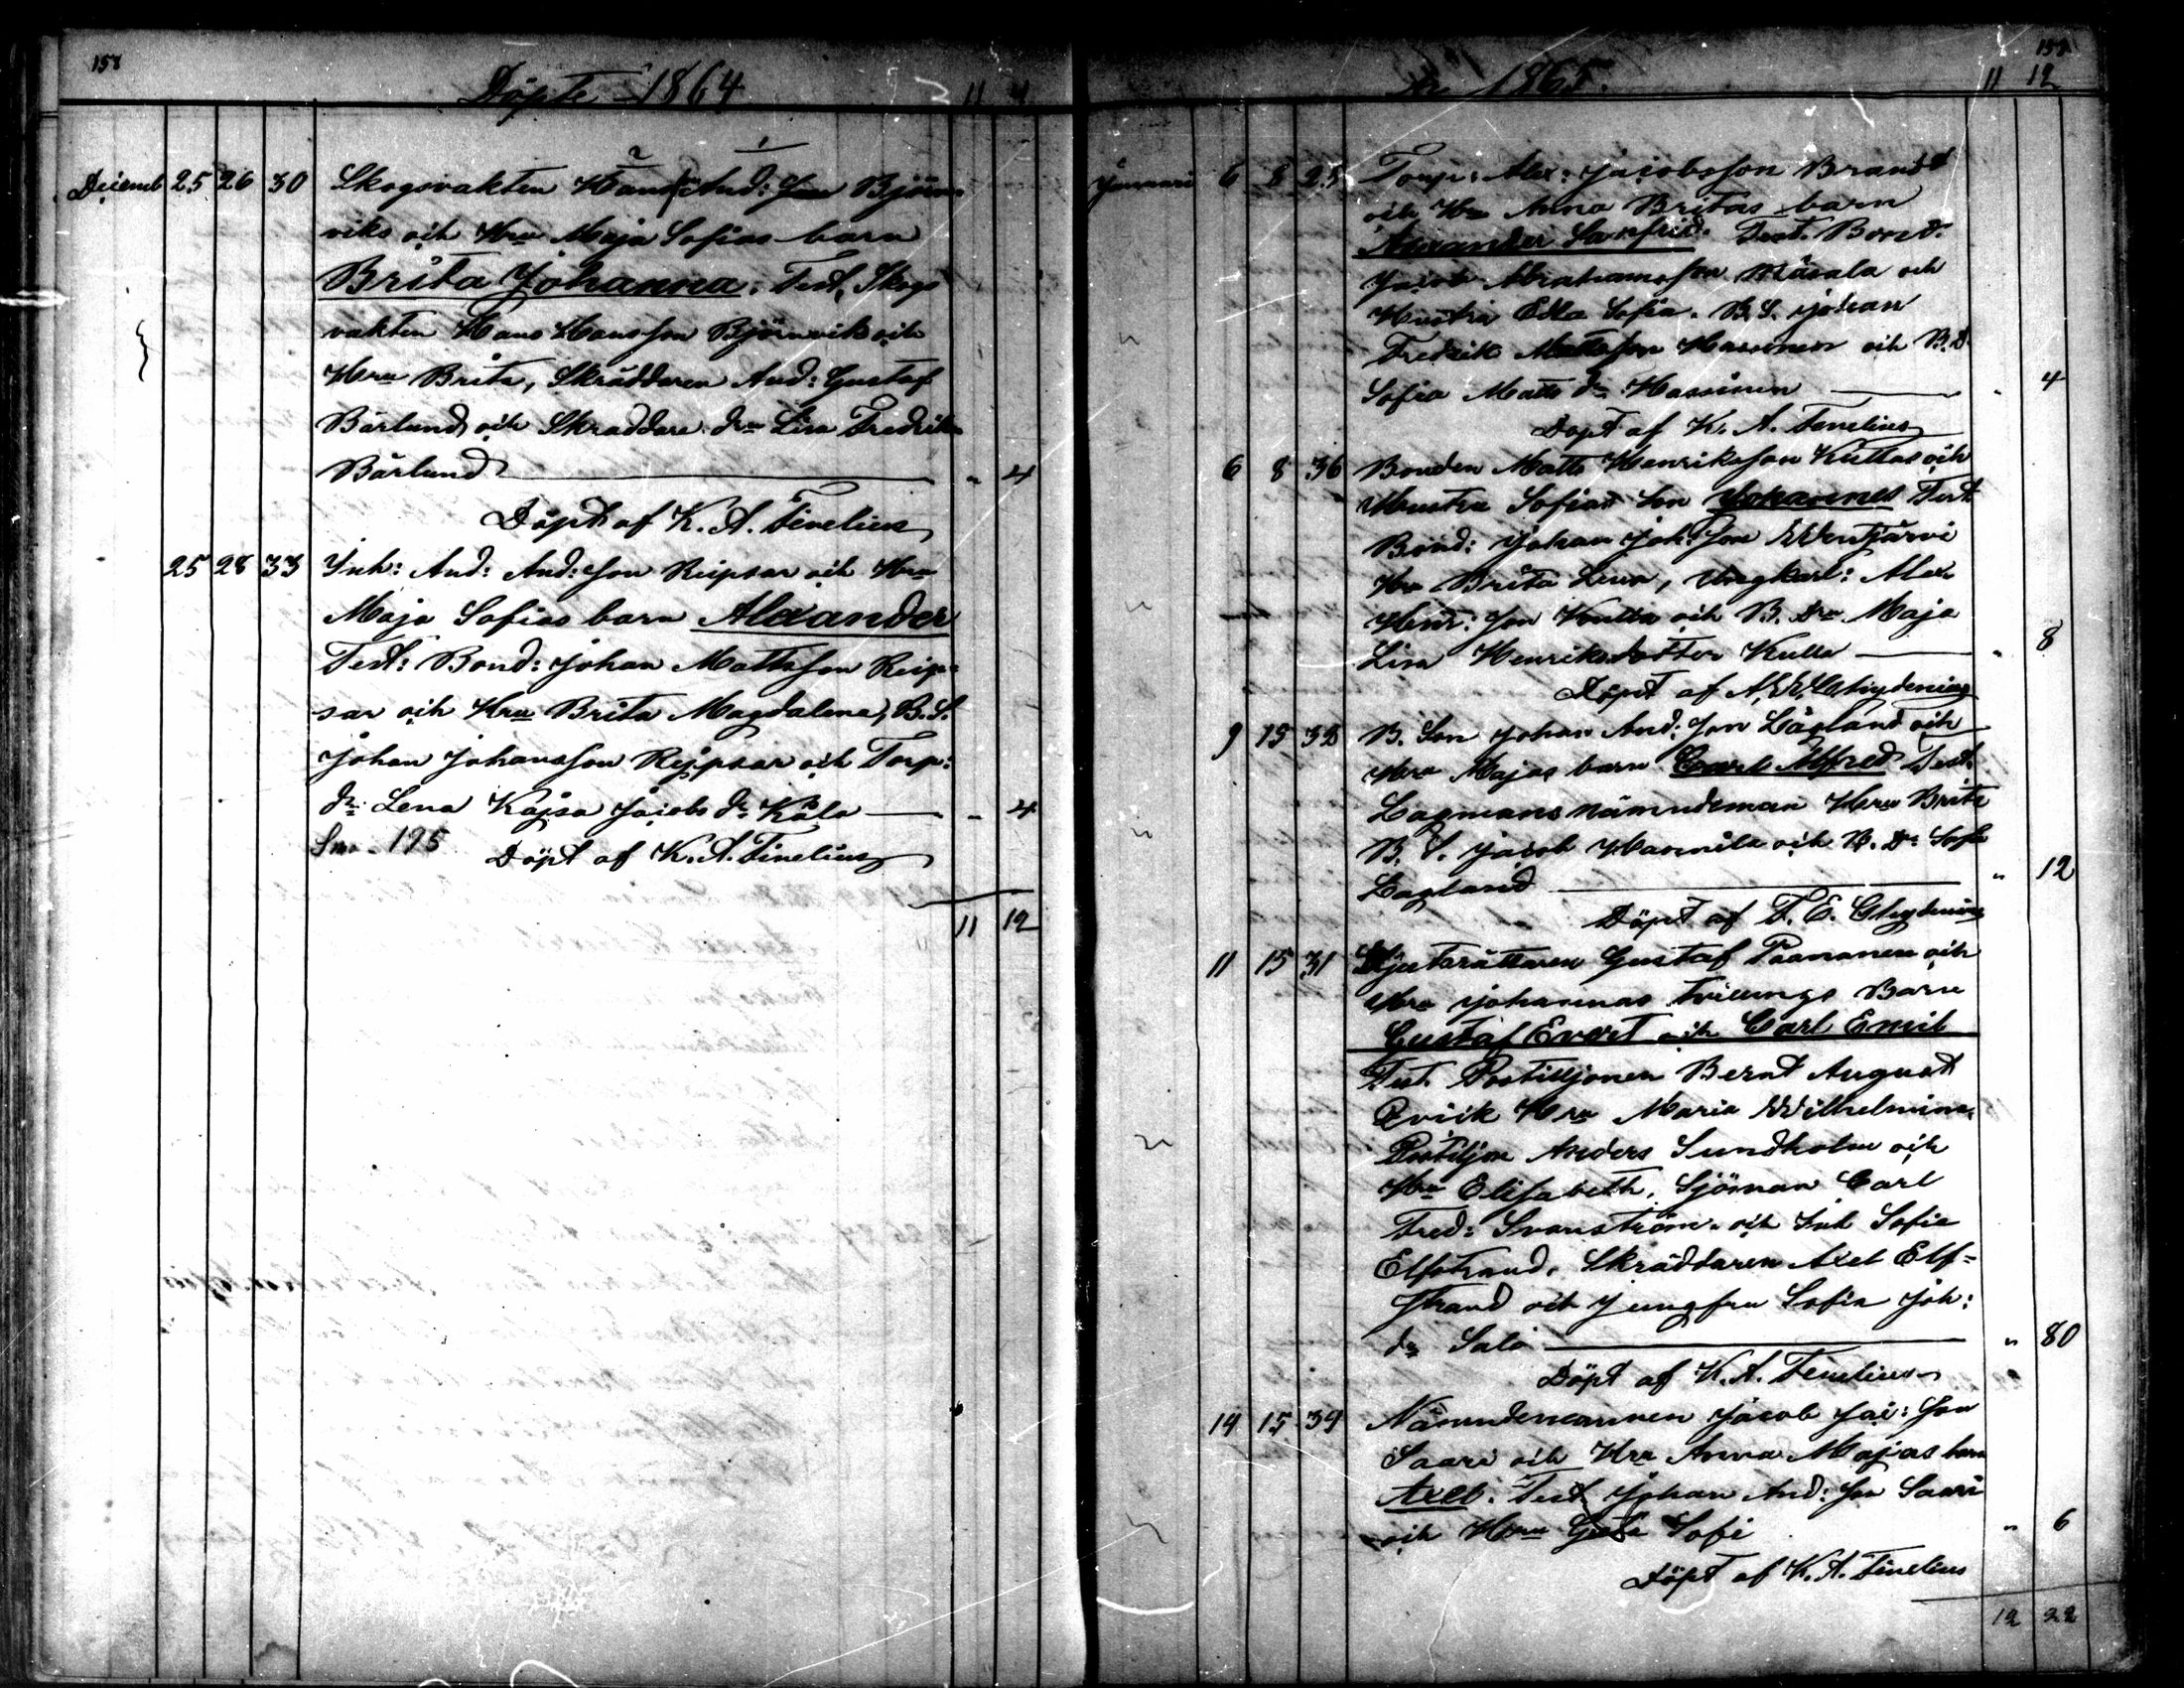 158
Döpte 1864
11 4
Decemb 25 26 30 Skogsvakten Hans And: Son Björn-
viks och Hru Maja Sofias barn
Brita Johanna. Test, Skogs
vakten Hans Hansson Björnvik och
Hru Brita, Skräddaren And: Gustaf
Bärlund och Skraddare dra Lisa Fredrika
Bärlund " 4
Döpt af K. A. Finelius
25 28 33 Inh: And: And: Son Reipsar och Hru
Maja Sofias barn Alexander
Test: Bond: Johan Mattsson Reip-
sar och Hru Brita Magdalena, B. S.
Johan Johansson Reipsar och Torp:
dr Lena Kajsa Jacobs dr Kåla " 4
Sma 195 Döpt af K. A. Finelius
11 12
1865.
11 12
Januari 6 8 25 Torp: Alex: Jacobsson Brandt
och Hru Anna Britas barn
Alexander Sanfrid. Test. Bond.
Jacob Abrahamsson Måsala och
Hustru Edla Sofia. B. S. Johan
Fredrik Mattsson Hassinen och B. D.
Sofia Matts dr Hassinen " 4
Döpt af K. A. Finelius
6 8 36 Bonden Matts Henriksson Kullas och
Hustru Sofias Son Johannes Test
Bond: Johan Joh: Son
Hru Brita Lena, Ungkarl: Alex
Henr: Son Kulla och B. dra Maja
Lisa Henriksdotter Kulla " 8
Döpt af
9 15 38 B. Son Johan And: Son Lågland och
Hru Majas barn Carl Alfred Test.
Lagmans nämndeman Hru Brita
B. S. Jacob Harmila och B. Dr Sofia
Lagland " 12
Döpt af F. E.
11 15 31 Gustaf Paananen och
Hru Johannas Tvillings Barn
Gustaf Evert och Carl Emil
Test. Postilljonen Bernt August
Qvick Hru Maria Wilhelmina,
Postiljon Anders Sundholm och
Hru Elisabeth, Sjöman Carl
Fred: Svanström och Inh Sofia
Elfstrand, Skräddaren Axel Elf-
strand och Jungfru Sofia Joh:
dr Salo " 80
Döpt af K. A. Finelius
14 15 39 Nämndemannen Jacob Jac: Son
Saari och Hru Anna Majas barn
Axel. Test Johan And: Son Saari
och Hru Greta Sofi " 6
Döpt af K. A. Finelius
12 22